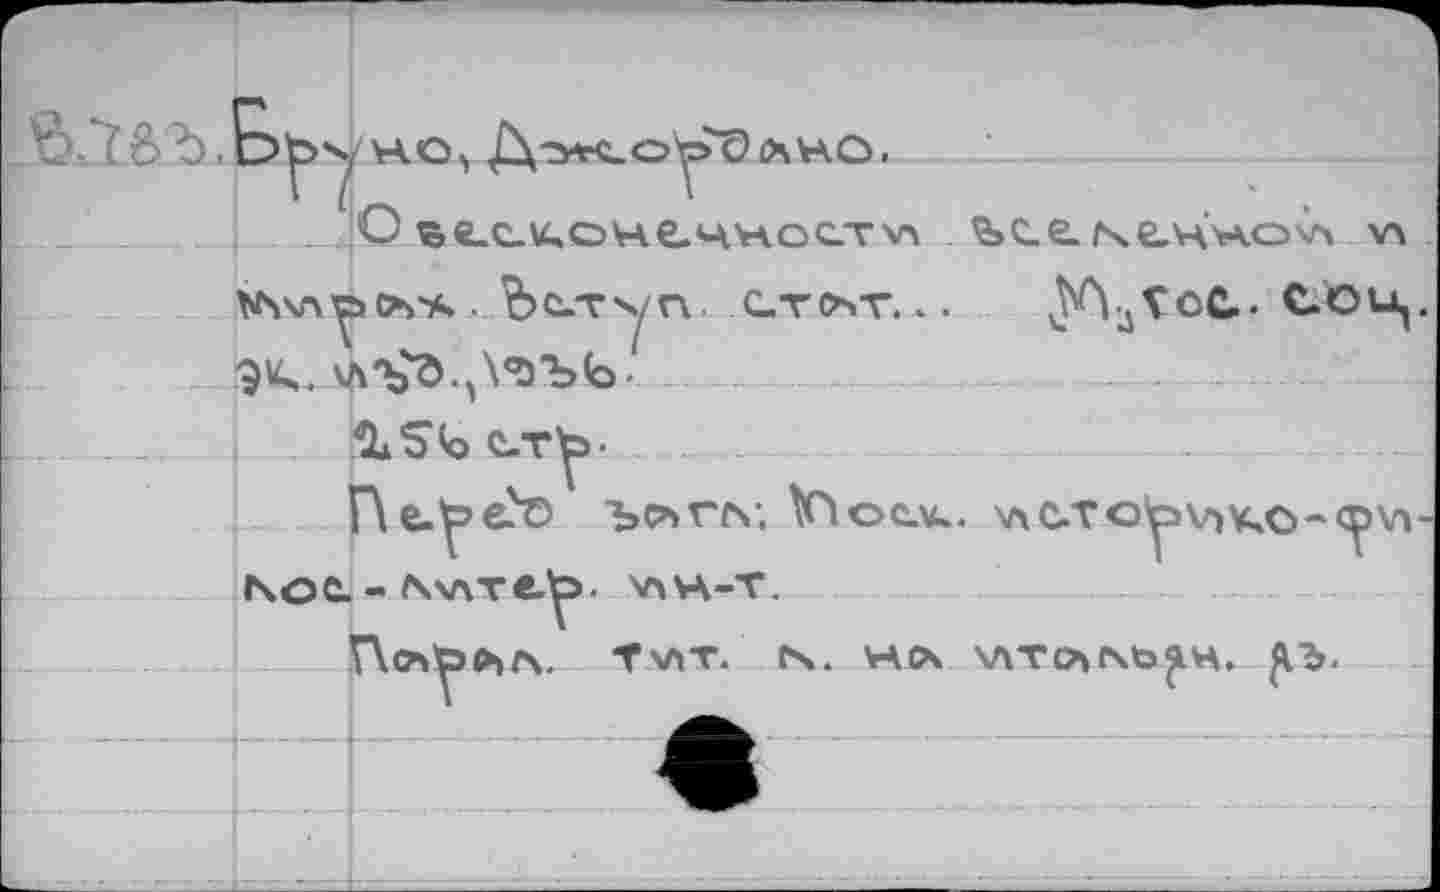 В.783. Бруно, Джордано.
О бесконечности вселенной и
мирах. Вступ. стат... М., Гос. соц.
эк. изд., 1936.
256 стр.
Перед загл; Моск. историко-фи-
лос.-литер. ин-т.
Парал. тит. л. на итальян. яз.